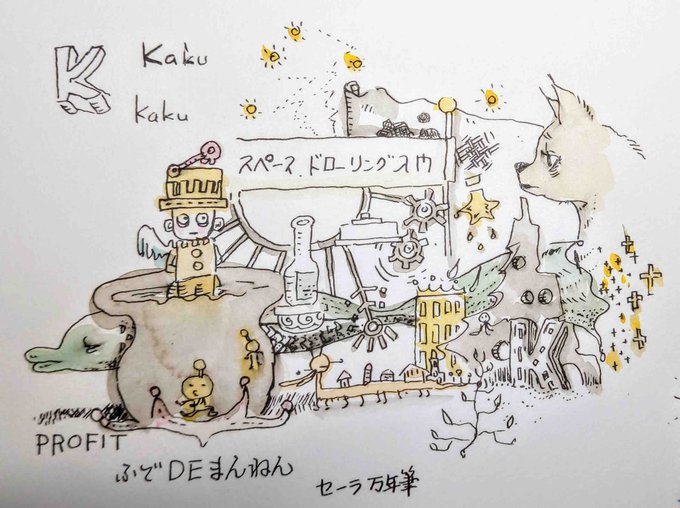 K
Kaku
kaku
スペース.ドローリングス内
PROFIT
ふでDEまんねん
セーラ万年筆